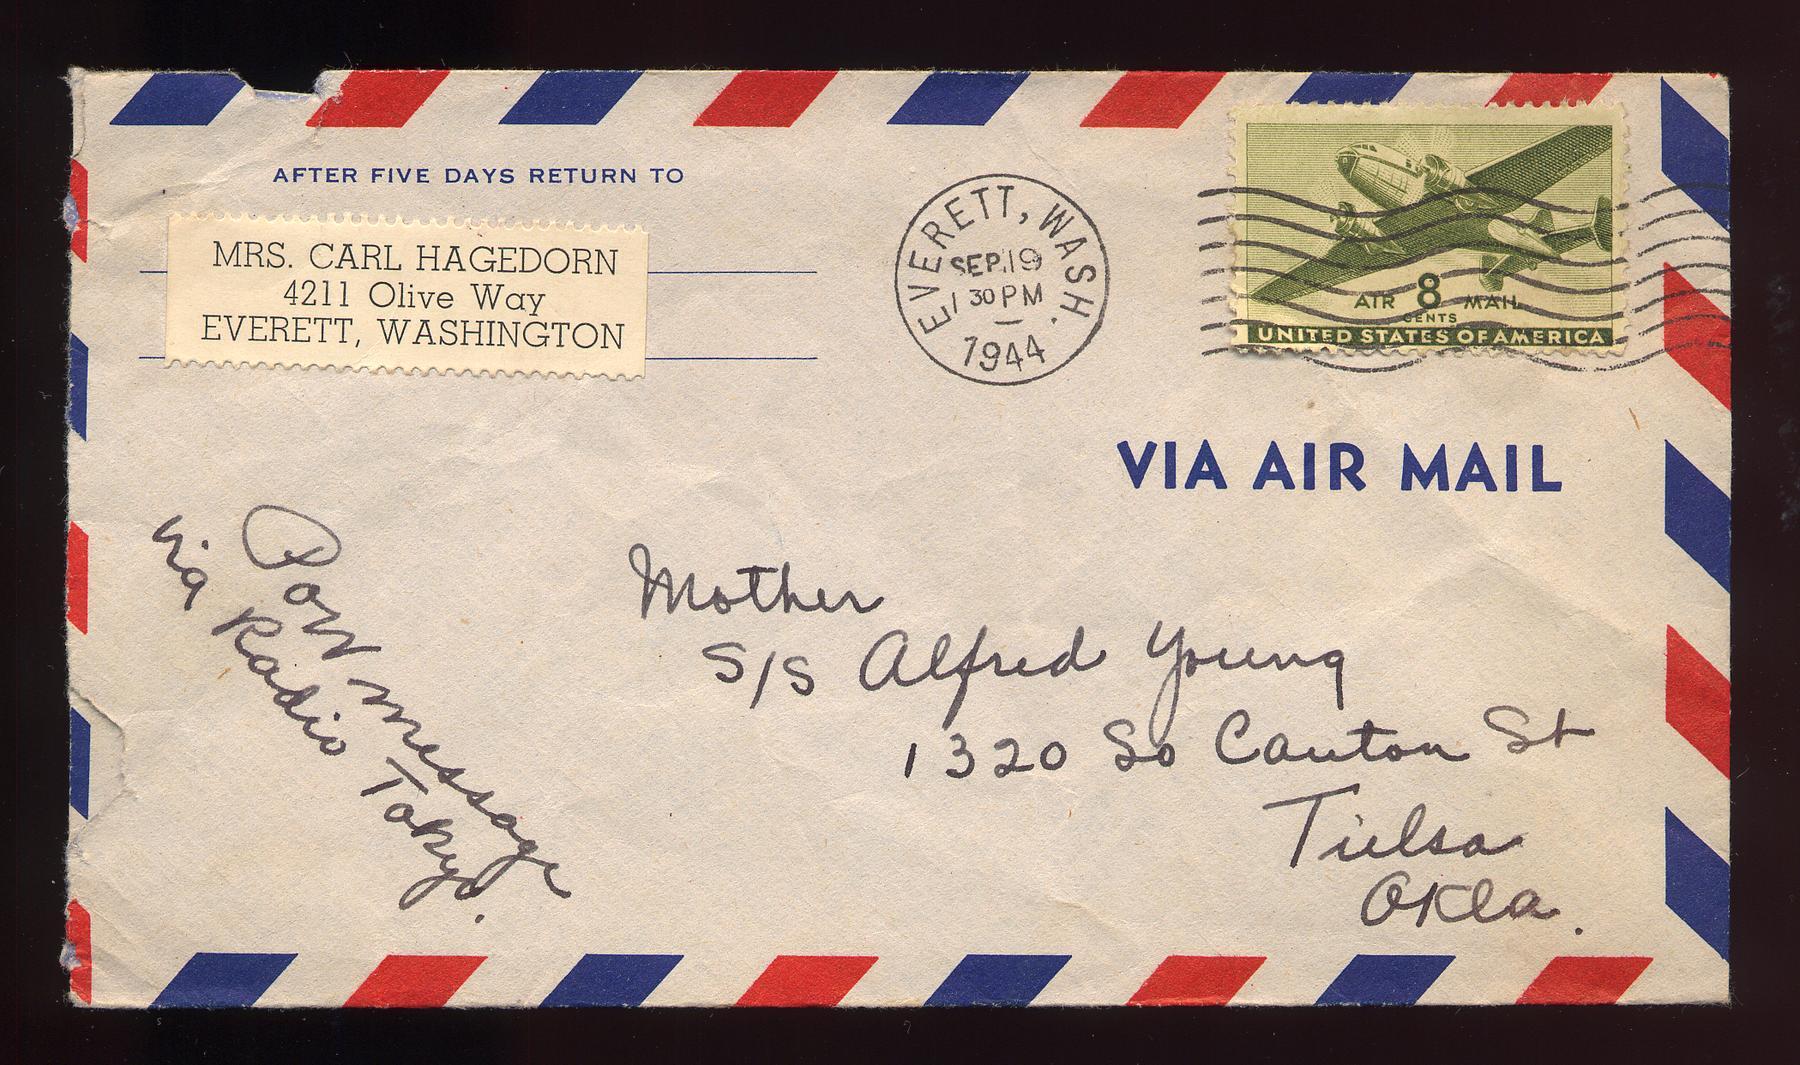 AFTER FIVE DAYS RETURN TO
MRS. CARL HAGEDORN
4211 Olive Way
EVERETT, WASHINGTON
EVERETT, WASH.
SEP 19
1 30 PM
1944
AIR 8 MAIL
CENTS
UNITED STATES OF AMERICA
VIA AIR MAIL
Pow message
via Radio Tokyo.
Mother
S/S Alfred Young
1320 So Canton St
Tulsa
Okla.